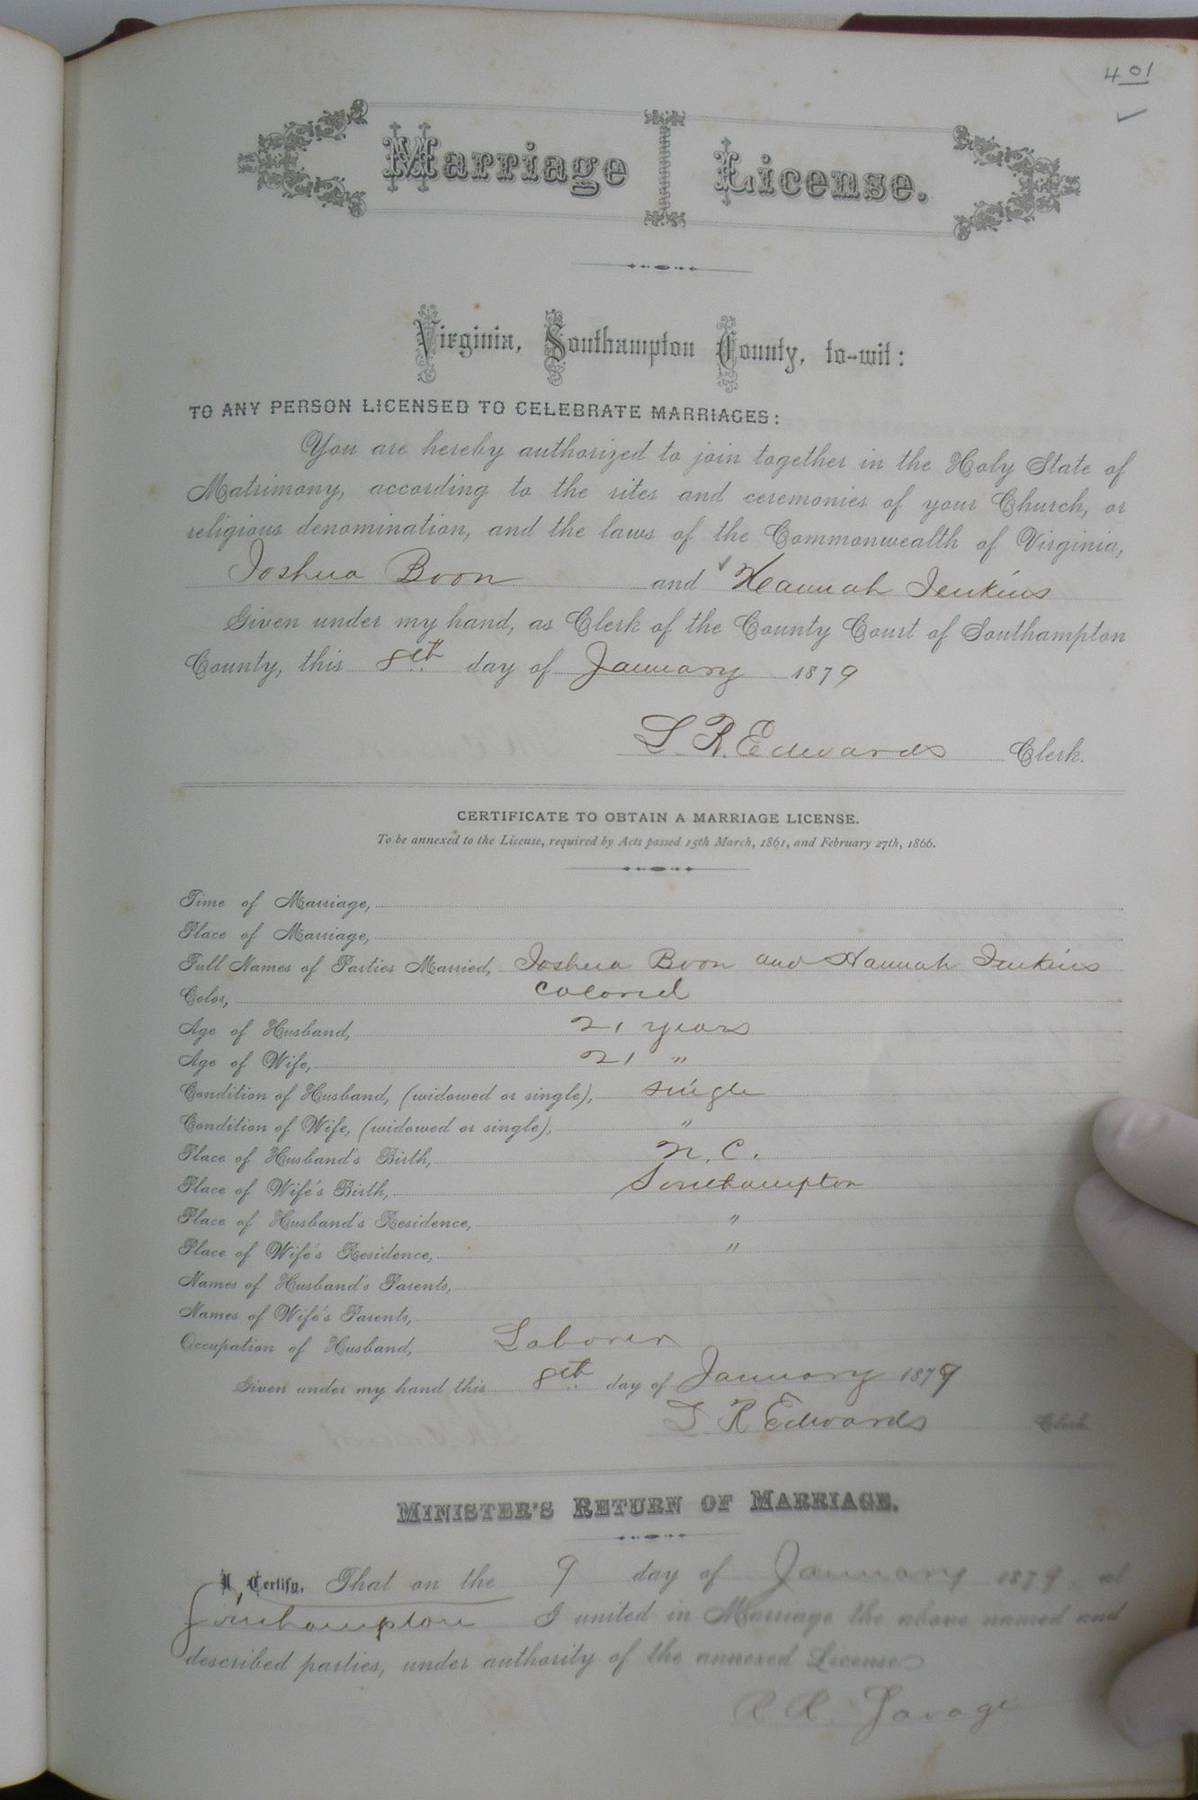 401
Marriage License.
Virginia, Southampton County, to-wit:
TO ANY PERSON LICENSED TO CELEBRATE MARRIAGES:
You are hereby authorized to join together in the Holy State of
Matrimony, according to the rites and ceremonies of your Church, or
religious denomination, and the laws of the Commonwealth of Virginia,
Joshua Boon and Hannah Jenkins
Given under my hand, as Clerk of the County Court of Southampton
County, this 8th day of January 1879
L. R. Edwards Clerk.
CERTIFICATE TO OBTAIN A MARRIAGE LICENSE.
To be annexed to the License, required by Acts passed 15th March, 1861, and February 27th, 1866.
Time of Marriage,
Place of Marriage,
Full Names of Parties Married, Joshua Boon and Hannah Jenkins
Color, Colored
Age of Husband, 21 years
Age of Wife, 21 "
Condition of Husband, (widowed or single), single
Condition of Wife, (widowed or single), "
Place of Husband's Birth, N. C.
Place of Wife's Birth, Southampton
Place of Husband's Residence, "
Place of Wife's Residence, "
Names of Husband's Parents,
Names of Wife's Parents,
Occupation of Husband, Laborer
Given under my hand this 8th day of January 1879
L. R. Edwards Clerk
MINISTER'S RETURN OF MARRIAGE.
I Certify, That on the 9 day of January 1879, at
Southampton I united in Marriage the above named and
described parties, under authority of the annexed License
R. R. Savage